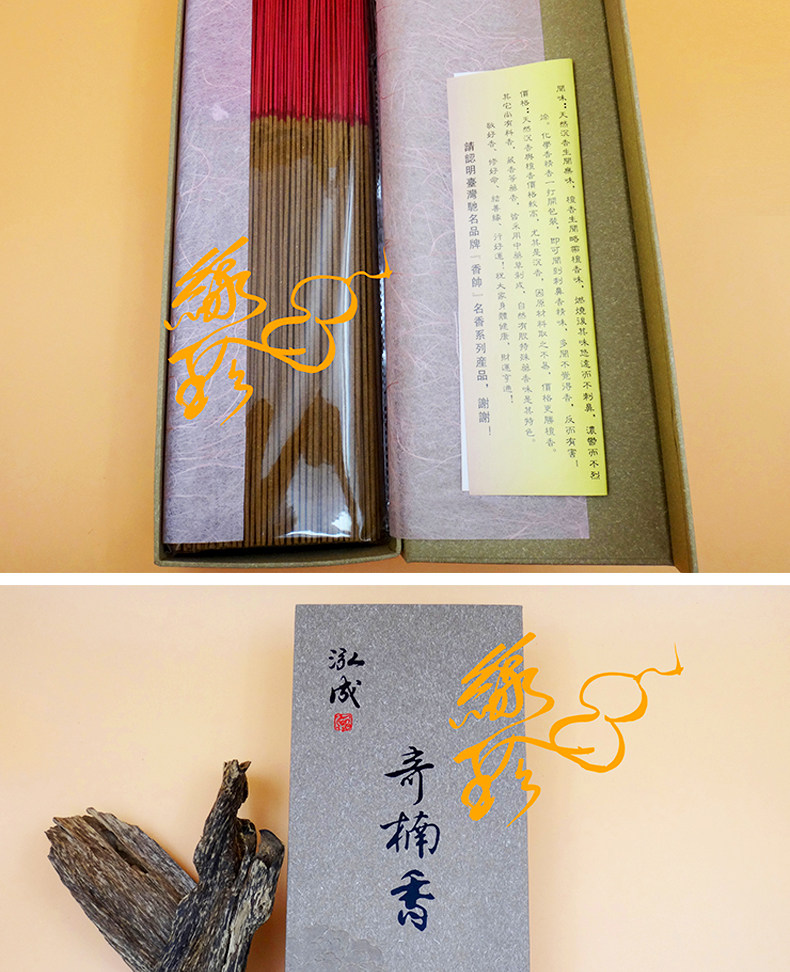 聞味：天然沉香生聞無味，檀香生聞略帶檀香味，燃燒後其味悠遠而不刺鼻，濃鬱而不烈
徐。化學香精香一打開包裝，即可聞到刺鼻香精味，多聞不覺得香，反而有害！
價格：天然沉香與檀香價格較高，尤其是沉香，因原材料取之不易，價格更勝檀香。
其它尚有料香，藏香等藥香，皆采用中藥草制成，自然有股特殊藥香味是其特色。
敬好香，修好命，結善緣，行好運！祝大家身體健康，財運亨通！
請認明臺灣馳名品牌『香帥』名香系列産品，謝謝！
緣
珍
泓成
奇楠香
緣
珍